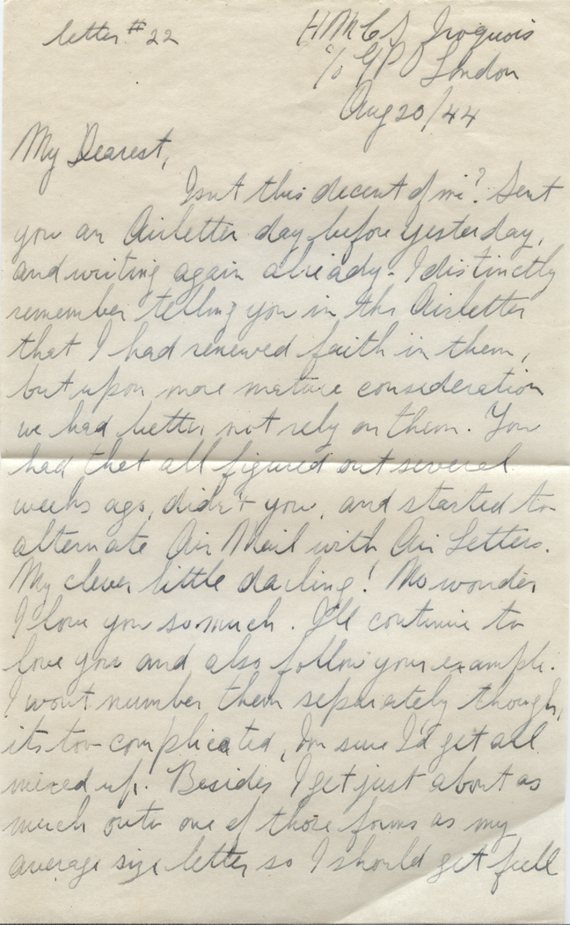 letter #22
HMCS Iroquois
c/o GPO London
Aug 20/44
My Dearest,
Isnt this decent of me? Sent
you an Airletter day before yesterday,
and writing again already. I distinctly
remember telling you in the Airletter
that I had renewed faith in them,
but upon more mature consideration
we had better not rely on them. You
had that all figured out several
weeks ago, didn't you, and started to
alternate Air Mail with Air Letters.
My clever little darling! No wonder
I love you so much. I'll continue to
love you and also follow your example.
I wont number them separately though,
its too complicated, Im sure I'd get all
mixed up. Besides I get just about as
much onto one of those forms as my
average size letter so I should get full